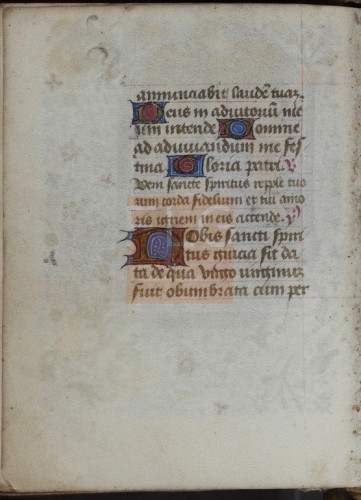 annunciabit laudē tuaz.
Deus in adiutoriū me
um intende Domine
ad adiuuandum me fes
tina. Gloria patri. V
Veni sancte spiritus repple tuo
rum corda fidelium et tui amo
ris ignem in eis accende. V
Nobis sancti spiri
tus gracia sit da
ta de qua virgo virginuz
fuit obumbrata cum per